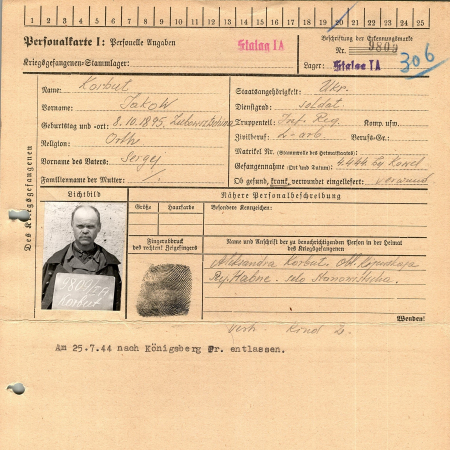 1 2 3 4 5 6 7 8 9 10 11 12 13 14 15 16 17 18 19 20 21 22 23 24 25
Personalkarte I: Personelle Angaben
Stalag IA
Beschriftung der Erkennungsmarke
Nr. 9809
306
Kriegsgefangenen-Stammlager:
Lager: Stalag IA
Des Kriegsgefangenen
Name: Korbut
Vorname: Jakow
Geburtstag und -ort: 8.10.1895,
Religion: Orth.
Vorname des Vaters: Sergej
Familienname der Mutter: /
Staatsangehörigkeit: Ukr.
Dienstgrad: soldat
Truppenteil: Inf. Reg. Komp. usw.
Zivilberuf: L-arb. Berufs-Gr.
Matrikel Nr. (Stammrolle des Heimatstaates)
Gefangennahme (Ort und Datum): 4.4.44
Ob gesund, krank, verwundet eingeliefert:
Lichtbild
9809 IA
Korbut
Größe
Haarfarbe
Fingerabdruck
des rechten! Zeigefingers
Nähere Personalbeschreibung
Besondere Kennzeichen:
Name und Anschrift der zu benachrichtigenden Person in der Heimat
des Kriegsgefangenen
Aleksandra Korbut
Wenden!
verh. Kind 2.
Am 25.7.44 nach Königsberg Pr. entlassen.